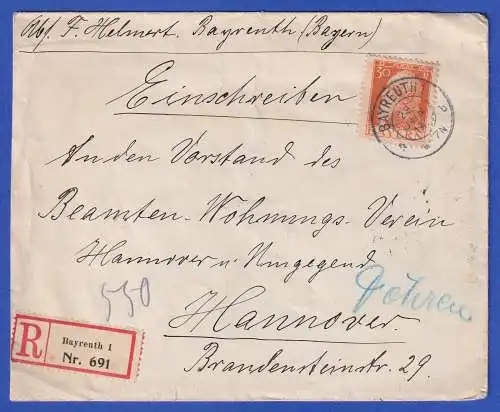 Abs. F. Helmert. Bayreuth (Bayern)
30
BAYREUTH
Einschreiben
An den Vorstand des
Beamten-Wohnungs-Verein
Hannover u. Umgegend
550
Döhren
Hannover.
Brandensteinstr. 29.
R
Bayreuth 1
Nr. 691